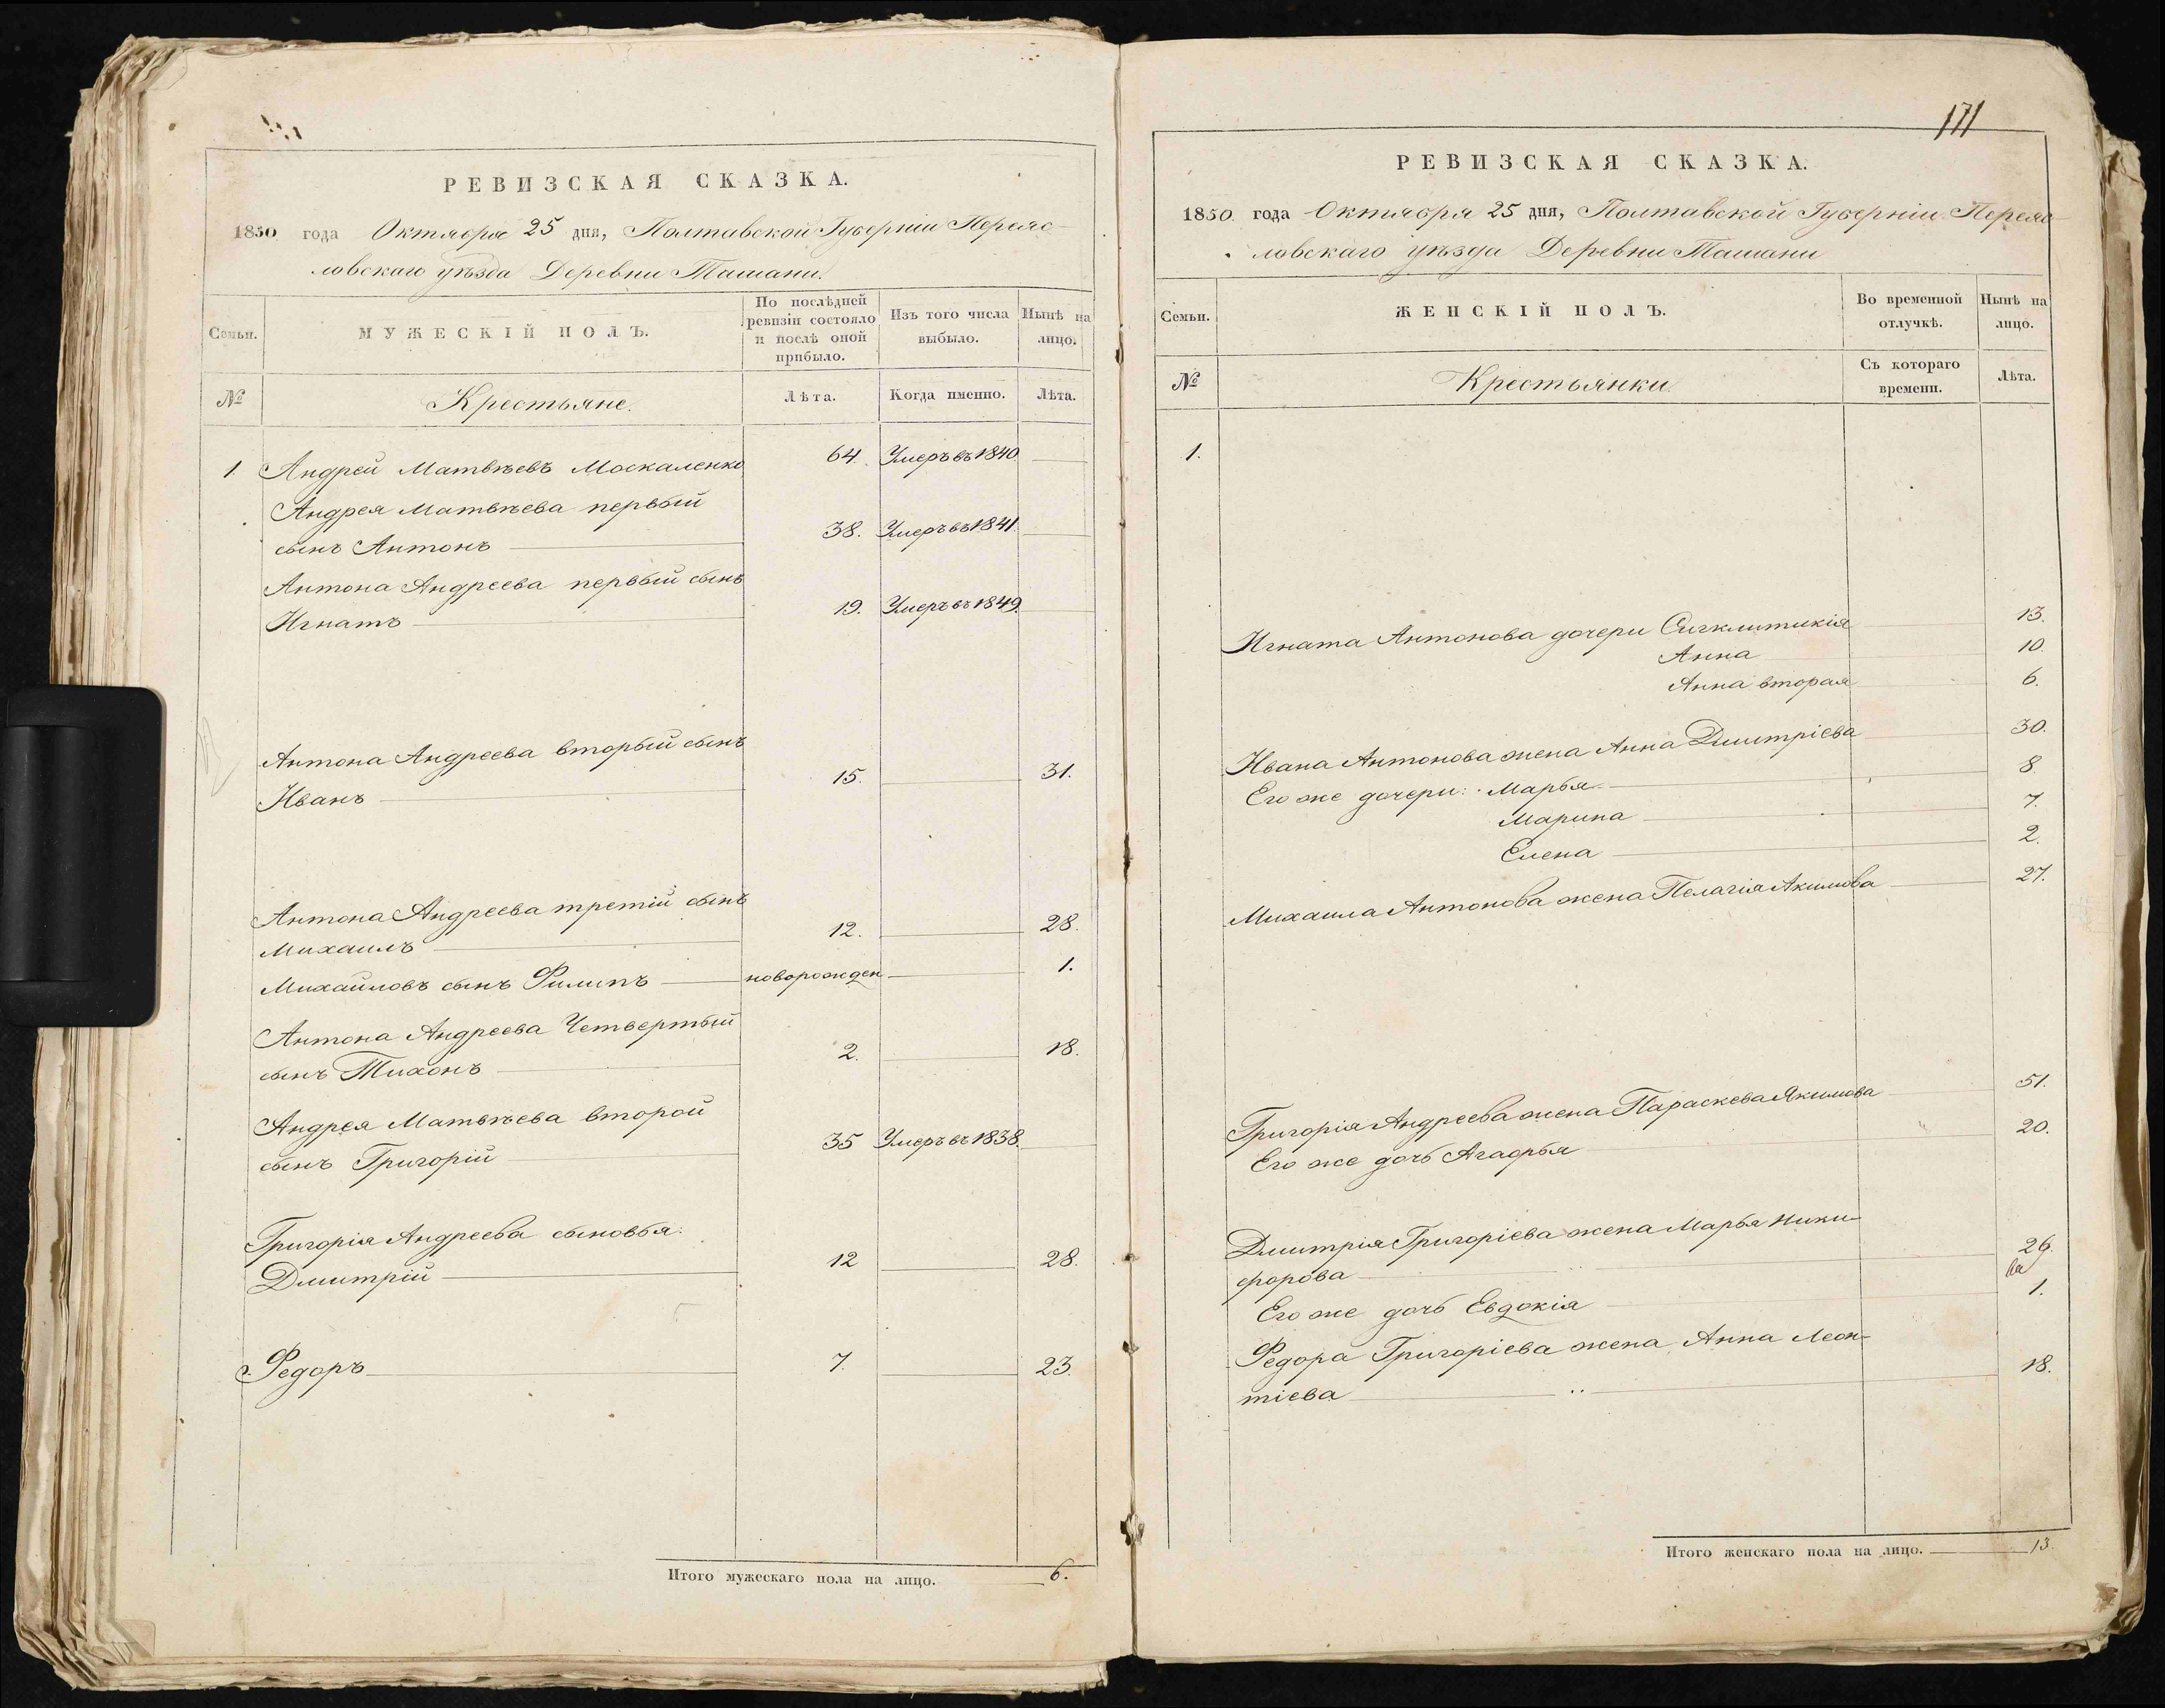 РЕВИЗСКАЯ СКАЗКА.
1850 года Октября 25 дня, Полтавской Губерніи Переяс-
ловскаго уѣзда Деревни Ташани.
Семьи.
МУЖЕСКІЙ ПОЛЪ.
По послѣдней
ревизіи состояло
и послѣ оной
прибыло.
Изъ того числа
выбыло.
Нынѣ на
лицо.
№
Крестьяне.
Лѣта.
Когда именно.
Лѣта.
1. Андрей Матвѣевъ Москаленко 64. Умеръ въ 1840.
Андрея Матвѣева первый
сынъ Антонъ 38. Умеръ въ 1841.
Антона Андреева первый сынъ
Игнатъ 19. Умеръ въ 1849.
Антона Андреева вторый сынъ
Иванъ 15. 31.
Антона Андреева третій сынъ
Михаилъ 12. 28.
Михайловъ сынъ Филипъ новорожден 1.
Антона Андреева Четвертый
сынъ Тихонъ 2. 18.
Андрея Матвѣева второй
сынъ Григорій 35 Умеръ въ 1838.
Григорія Андреева сыновья:
Дмитрій 12 28.
Федоръ 7. 23.
Итого мужескаго пола на лицо. 6.
171
РЕВИЗСКАЯ СКАЗКА.
1850 года Октября 25 дня, Полтавской Губерніи Переяс
ловскаго уѣзда Деревни Ташани
Семьи.
ЖЕНСКІЙ ПОЛЪ.
Во временной
отлучкѣ.
Нынѣ на
лицо.
№
Крестьянки
Съ котораго
времени.
Лѣта.
1.
Игната Антонова дочери Сигклитикія 13.
Анна 10.
Анна вторая 6.
Ивана Антонова жена Анна Дмитріева 30.
Его же дочери: Марья 8.
Марина 7.
Елена 2.
Михаила Антонова жена Пелагія Акимова 27.
Григорія Андреева жена Параскева Якимова 51.
Его же дочь Агафья 20.
Дмитрія Григоріева жена Марья Ники-
форова 26.
Его же дочь Евдокія 1.
Федора Григоріева жена Анна Леон-
тіева 18.
Итого женскаго пола на лицо. 13.